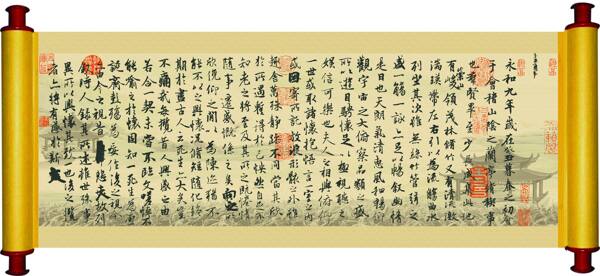 永和九年歲在癸丑暮春之初會
于會稽山陰之蘭亭脩稧事
也羣賢畢至少長咸集此地
有崇山峻領茂林脩竹又有清流激
湍暎帶左右引以為流觴曲水
列坐其次雖無絲竹管弦之
盛一觴一詠亦足以暢敘幽情
是日也天朗氣清惠風和暢仰
觀宇宙之大俯察品類之盛
所以遊目騁懷足以極視聽之
娛信可樂也夫人之相與俯仰
一世或取諸懷抱悟言一室之內
或因寄所託放浪形骸之外雖
趣舍萬殊靜躁不同當其欣
於所遇蹔得於己快然自足不
知老之將至及其所之既惓情
隨事遷感慨係之矣向之所
欣俛仰之間以為陳迹猶不
能不以之興懷況脩短隨化終
期於盡古人云死生亦大矣豈
不痛哉每攬昔人興感之由
若合一契未嘗不臨文嗟悼不
能喻之於懷固知一死生為虛
誕齊彭殤為妄作後之視今
亦由今之視昔悲夫故列
敘時人錄其所述雖世殊事
異所以興懷其致一也後之攬
者亦將有感於斯文